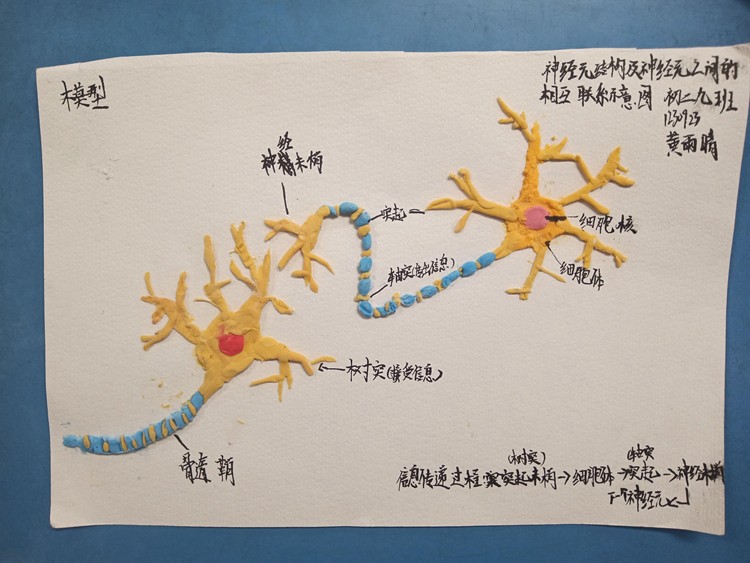 模型
神经元结构及神经元之间的
相互联系示意图 初二九班
1230923
黄雨晴
经
神稍末柄
突起
轴突(传出信息)
细胞核
细胞体
树突(接受信息)
髓鞘
(树突) (轴突)
信息传递过程:突起末柄→细胞体→突起→神经末梢
下一个神经元